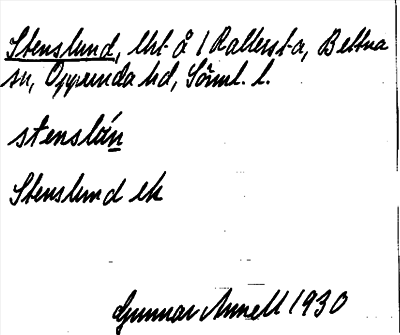 Stenslund, lht å 1 Rallersta, Bettna
sn, Oppunda hd, Sörml. l.
stenslún
Stenslund ek
Gunnar Annell 1930